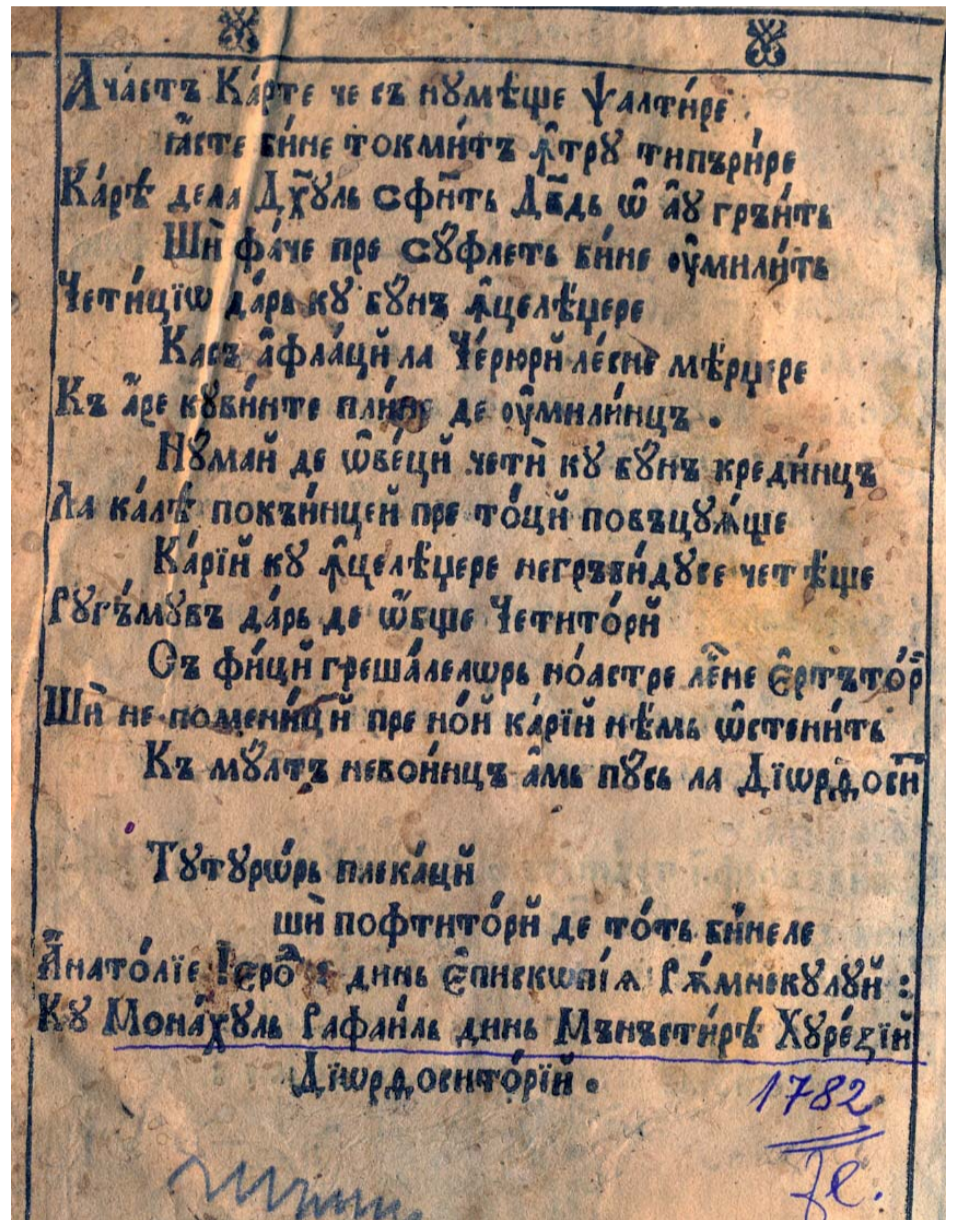 Ача́стъ Ка́рте че съ нꙋмѣ́ще Ѱалти́ре
ꙗ҆́сте би́не токми́тъ ꙟ҆трꙋ типъри́ре
Ка́рѣ дела Дх҃ꙋль Сфн҃ть Дв҃дь ѡ҆ а҆ꙋ гръи́ть
Шѝ фа́че пре сꙋ́флеть би́не ᲂу҆мили́ть
Чети́цїѡ да́рь кꙋ бꙋ́нъ ꙟ҆целѣ́џере
Касъ а҆фла́ци ла Че́рюрй ле́сне ме́рџере
Къ а҆́ре кꙋви́нте пли́не де ᲂу҆мили́нцъ .
Нꙋ́май де ѡ҆ве́цй четѝ кꙋ бꙋ́нъ креди́нцъ
Ла ка́лѣ покъи́нцей пре то́цй повъцꙋꙗ́ще
Ка́рїй кꙋ ꙟ҆целѣ́џере негръби́ндꙋсе четѣ́ще
Рꙋгъ́мꙋвъ да́рь де ѡ҆́бще Четито́рй
Съ фи́цй греша́лелѡрь но́астре ле́не є҆ртъто́р
Шѝ не помени́цй пре но́й ка́рїй нѣ́мь ѡ҆стени́ть
Къ мꙋ́лтъ невои́нцъ а҆́мь пꙋ́сь ла Дїѡрдоси
Тꙋтꙋрѡ́рь плека́цй
шѝ пофтито́рй де то́ть би́неле
А҆нато́лїе І҆еро҃ динь Є҆пископі́ѧ Рѫ́мникꙋлꙋй :
Кꙋ Мона́хꙋль Рафаи́ль динь Мънъсти́рѣ Хꙋре́зїй
Дїѡрдосито́рїй .
1782